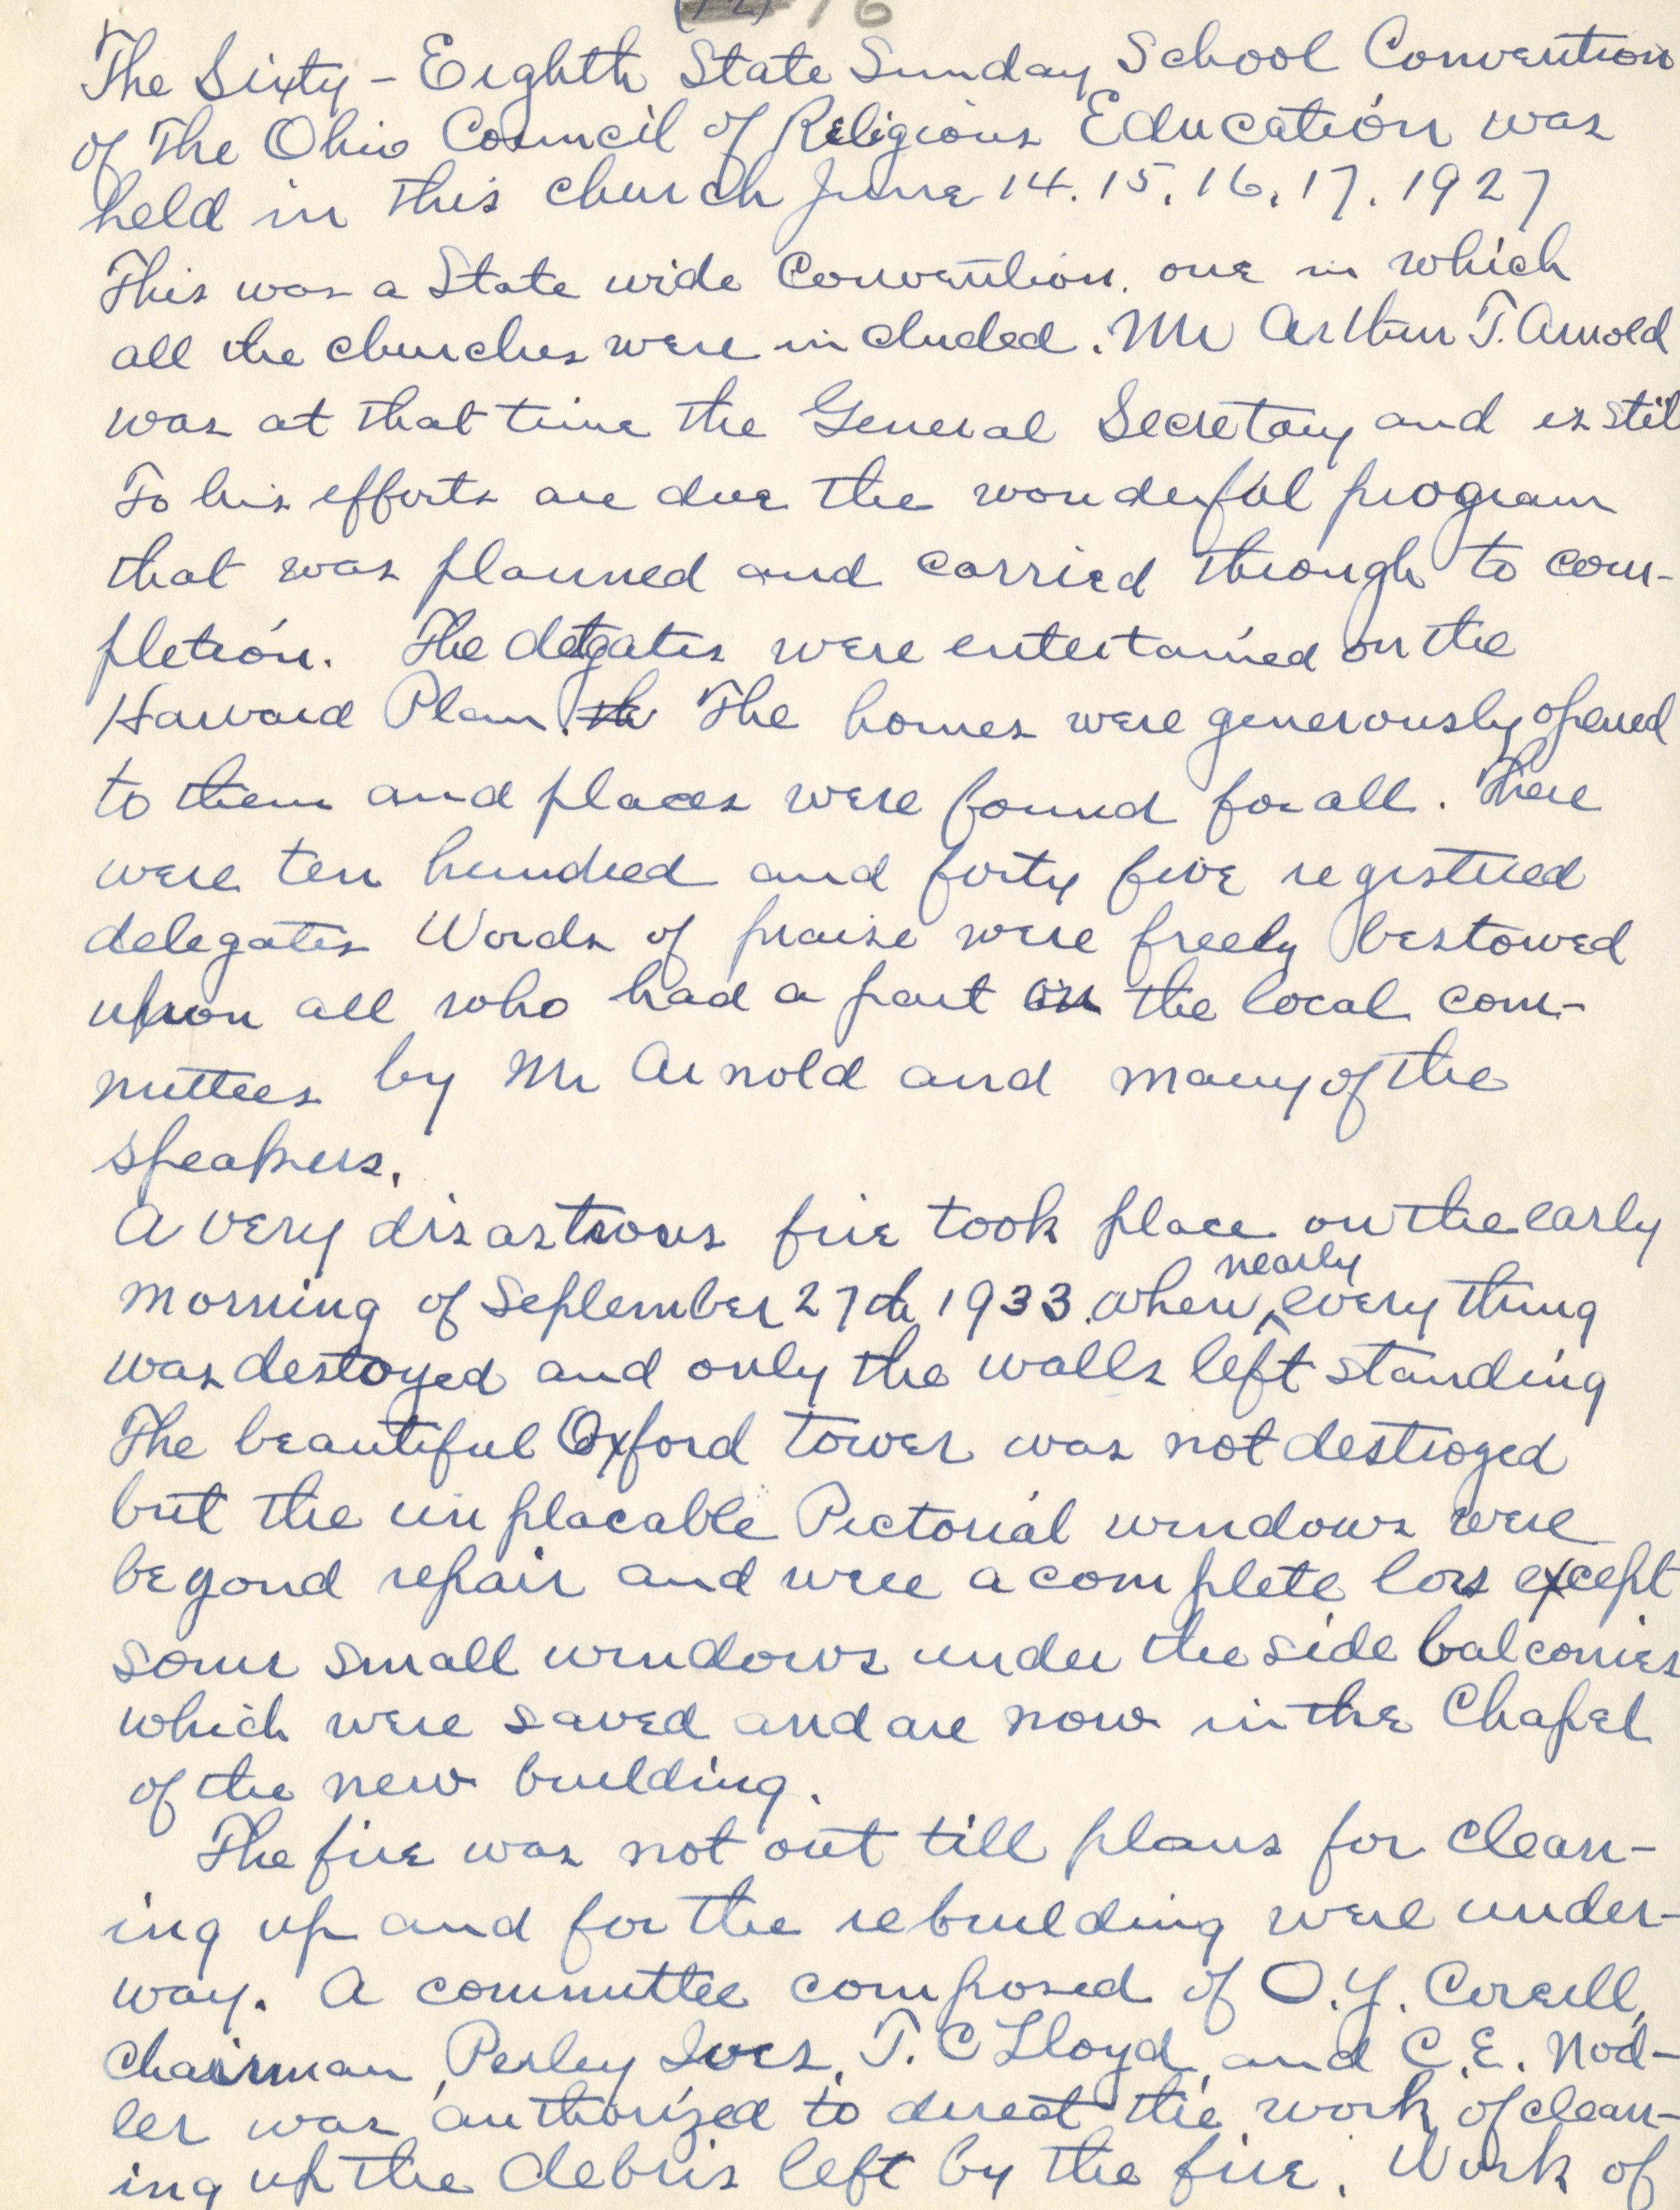 (12) 16
The Sixty-Eighth State Sunday School Convention
of The Ohio Council of Religious Education was
held in this church June 14. 15. 16. 17. 1927
This was a State wide Convention. one in which
all the churches were included. Mr Arthur T. Arnold
was at that time the General Secretary and is stil
To his efforts are due the wonderful program
that was planned and carried through to com-
pletion. The delegates were entertained on the
Harvard Plan. the The homes were generously opened
to them and places were found for all. There
were ten hundred and forty five registered
delegates Words of praise were freely bestowed
upon all who had a part on the local com-
mittees by Mr Arnold and many of the
speakers.
A very disastrous fire took place on the early
nearly
morning of September 27th 1933. when ^ every thing
was destoyed and only the walls left standing
The beautiful Oxford tower was not destroyed
but the unplacable Pictorial windows were
beyond repair and were a complete loss except
some small windows under the side balconies
which were saved and are now in the Chapel
of the new building.
The fire was not out till plans for clean-
ing up and for the rebuilding were under-
way. A committee composed of O.Y. Coreill,
Chairman, Perley Ives, T. C Lloyd, and C.E. Nod-
ler was authorized to direct the work of clean-
ing up the debris left by the fire. Work of